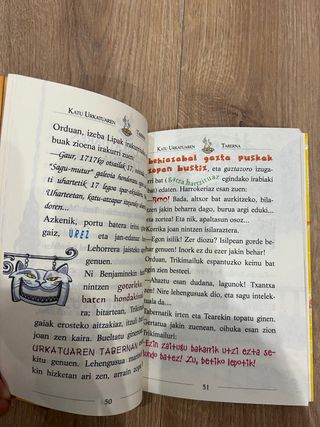 KATU URKATUAREN
TABERNA
Orduan, izeba Lipak irakurri
buak zioena irakurri zuen:
—Gaur, 1717ko otsailak 17,
"Sagu-mutur" galeoia hondoratu
ti uhartetik 17 legoa ipar
Uhartetan, katu-atzapar
doren...
Azkenik, portu batera iritsi
gaiz, UREZ eta jan-edanez
Lehorrera jaisteko
genuen.
Ni Benjaminekin
nintzen gotorleku
baten hondakinak
ra; bitartean,
gaiak erosteko aitzakiaz, itzuli bat
joan zen kaira. Bueltatu ginenean
URKATUAREN TABERNAN
kitu genuen. Lehengusua
kin hizketan ari zen, arrain
50
KATU URKATUAREN
TABERNA
behiazabal gazta puskak
zopan bustiz, eta gaztazoro izoga-
rri bat (gazta hartzituaz egindako irabiaki
bat) edaten. Harrokeriaz esan zuen:
—BOO! Bada, altxor bat aurkitzeko, bila-
tzen jakin beharra dago, burua argi eduki...
eta zortea! Eta nik, apaltasun osoz...
Korrika joan nintzen isilaraztera.
—Egon isilik! Zer diozu? Isilpean gorde be-
har genuen! Inork ez du ezer jakin behar!
Orduan, Trikimailuk espantuzko keinu bat
egin zien besteei.
—Ahaztu esan dudana, lagunok! Txantxa
zen! Nire lehengusuak dio, eta sagu intelek-
tuala da...
Tabernatik irten eta Tearekin topatu ginen.
Gertatua jakin zuenean, oihuka esan zion
Trikimailuri:
—Ezin zaitugu bakarrik utzi ezta se-
gundo batez! Zu, betiko lepotik!
51